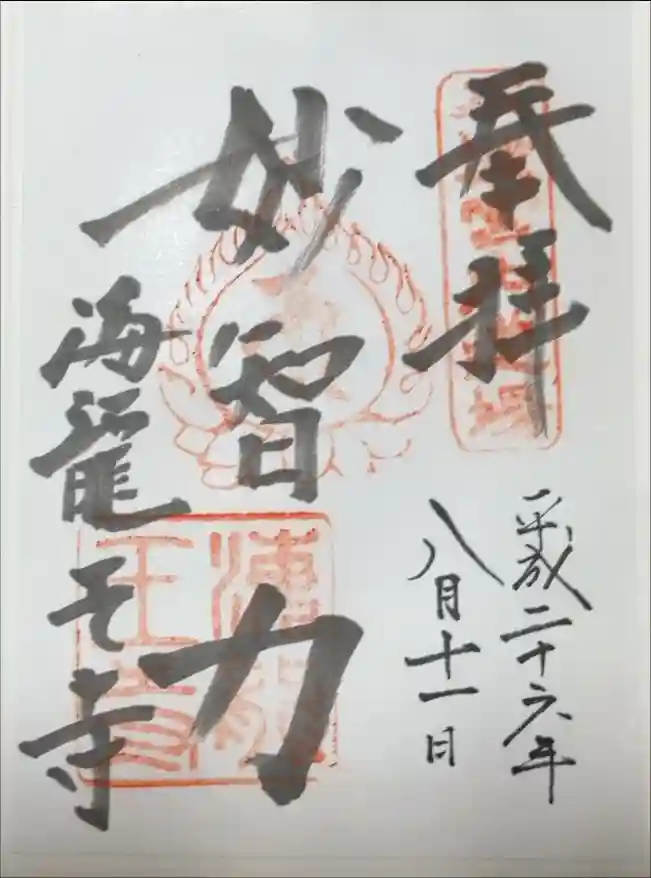 奉拝
平成二十六年
八月十一日
妙智力
海龍王寺
海龍
王寺